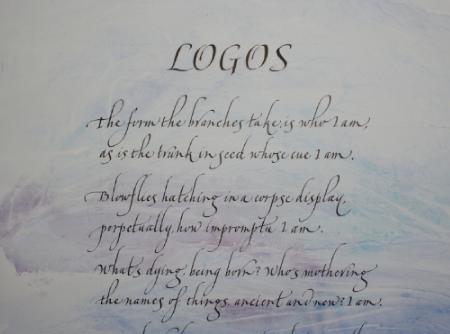 LOGOS
The form the branches take, is who I am,
as is the trunk in seed whose cue I am.
Blowflies hatching in a corpse display,
perpetually, how impromptu I am.
What's dying, being born? Who's mothering
the names of things, ancient and new? I am.